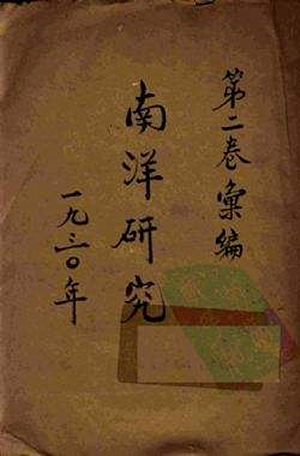 第二卷彙編
南洋研究
一九三〇年